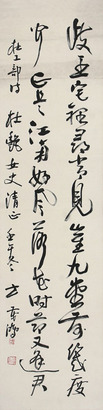 岐王宅裡尋常見崔九堂前幾度
聞正是江南好風景落花時節又逢君
杜工部詩
女史清正 壬午冬 方